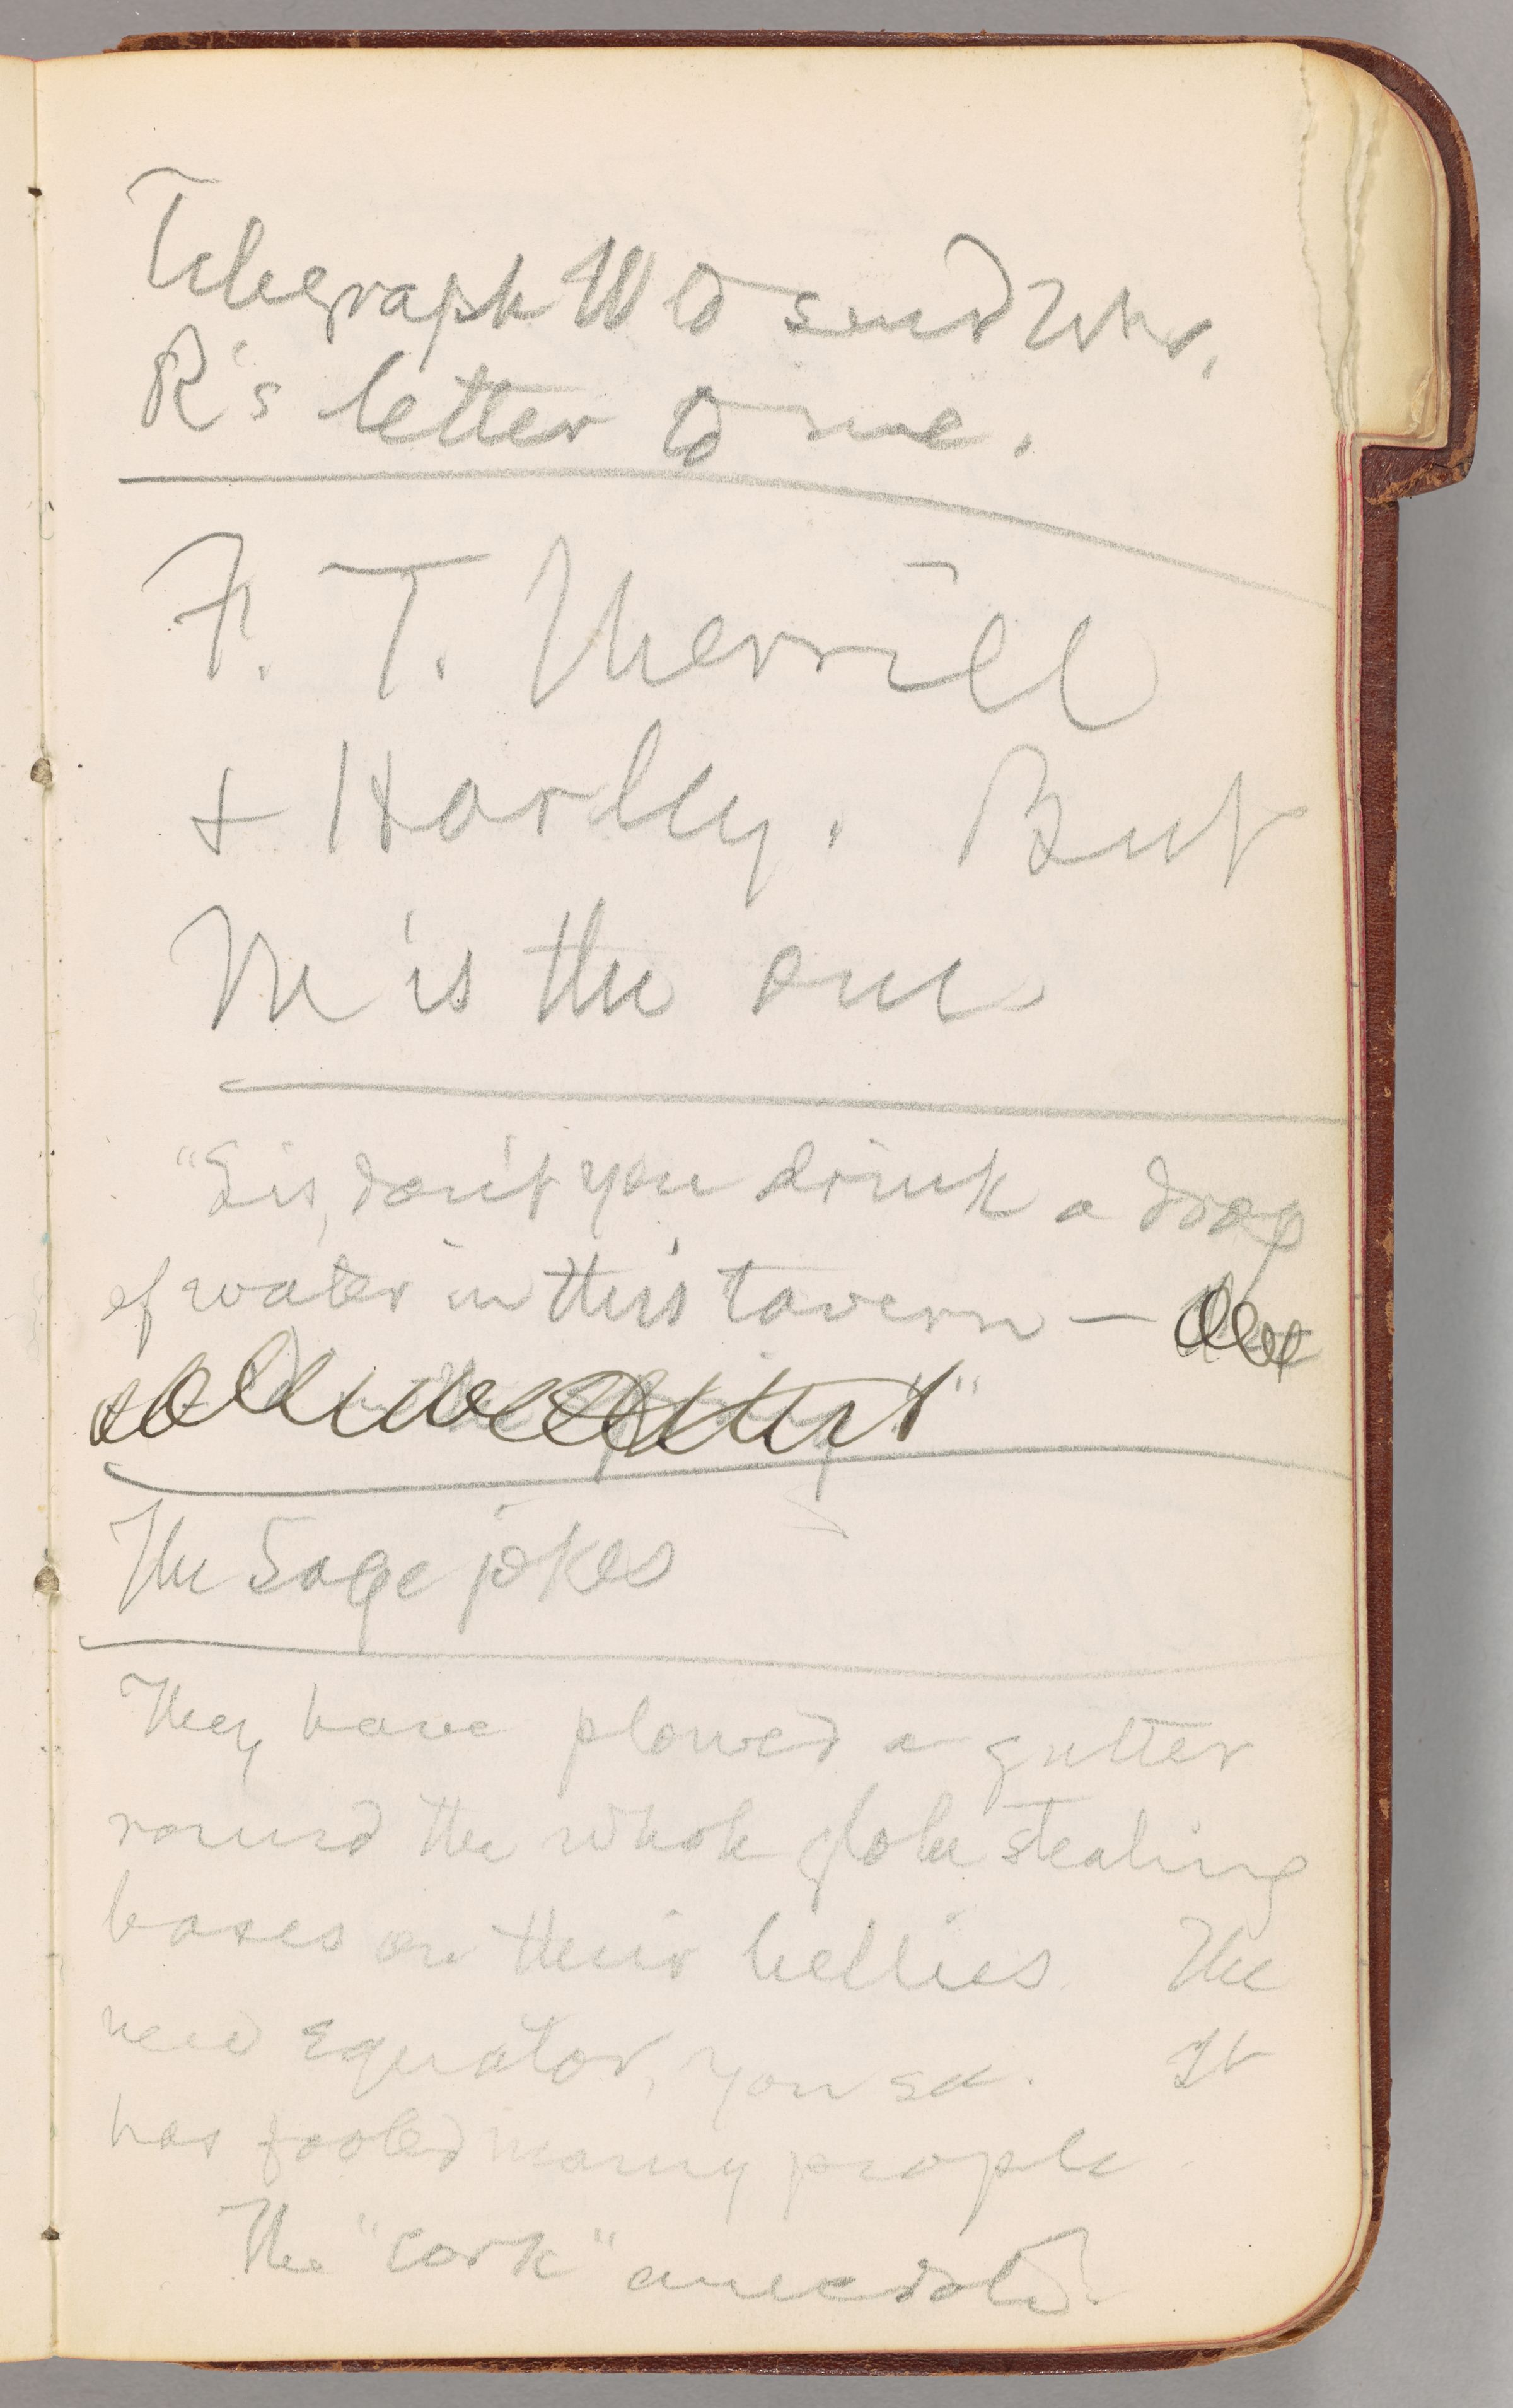 Telegraph W to send Mrs.
R's letter to me.
F. T. Merrill
& Harley. But
M is the one
"Sis, don't you drink a drop
of water in this tavern —
"
The Sage jokes
They have plowed a gutter
round the whole globe stealing
bases on their bellies. The
new Equator, you see. It
has fooled many people.
The "cork" anecdote.